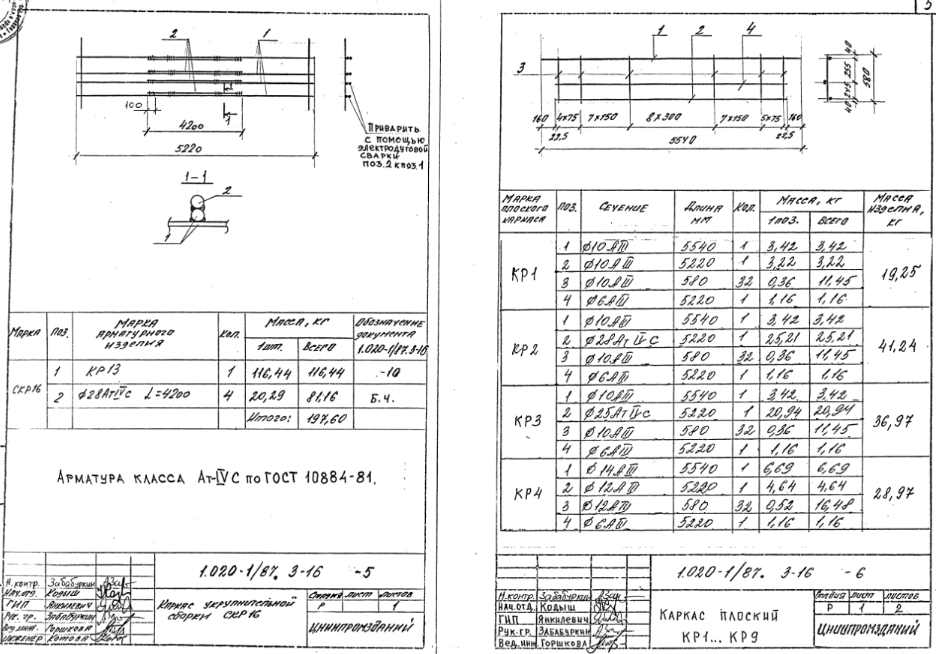 2
1
100
1
1
4200
5220
Приварить
с помощью
электродуговой
сварки
поз.2 к поз.1
1-1
2
1
Марка
Поз.
Марка арматурного изделия
Кол.
Масса, кг
Обозначение документа 1.020-1/87.3-16
1шт.
Всего
СКР16
1 КР13 1 116,44 116,44 -10
2 Ф28АтIVС L=4200 4 20,29 81,16 Б.ч.
Итого: 197,60
Арматура класса Ат-IVС по ГОСТ 10884-81.
1.020-1/87. 3-16 -5
Н.контр. Забабуркин
Нач.отд. Кодыш
ГИП Янкилевич
Рук. гр. Забабуркин
Вед.инж. Горшкова
Инженер Котова
Каркас укрупнительной
сборки СКР16
Стадия Лист Листов
Р 1
ЦНИИПРОМЗДАНИЙ
1
2
4
3
160 4x75 7x150 8x300 7x150 5x75 160
22,5
22,5
5540
40
255
245
40
580
Марка плоского каркаса
Поз.
Сечение
Длина мм
Кол.
Масса, кг
Масса изделия, кг
1 поз.
Всего
КР1
1 Ф10АIII 5540 1 3,42 3,42
2 Ф10АIII 5220 1 3,22 3,22
3 Ф10АIII 580 32 0,36 11,45
4 Ф6АIII 5220 1 1,16 1,16
19,25
КР2
1 Ф10АIII 5540 1 3,42 3,42
2 Ф28АтIVС 5220 1 25,21 25,21
3 Ф10АIII 580 32 0,36 11,45
4 Ф6АIII 5220 1 1,16 1,16
41,24
КР3
1 Ф10АIII 5540 1 3,42 3,42
2 Ф25АтIVС 5220 1 20,94 20,94
3 Ф10АIII 580 32 0,36 11,45
4 Ф6АIII 5220 1 1,16 1,16
36,97
КР4
1 Ф14АIII 5540 1 6,69 6,69
2 Ф12АIII 5220 1 4,64 4,64
3 Ф12АIII 580 32 0,52 16,48
4 Ф6АIII 5220 1 1,16 1,16
28,97
1.020-1/87. 3-16 -6
Н.контр. Забабуркин
Нач.отд. Кодыш
ГИП Янкилевич
Рук.гр. Забабуркин
Вед.инж Горшкова
Каркас плоский
КР1... КР9
Стадия Лист Листов
Р 1 2
ЦНИИПРОМЗДАНИЙ